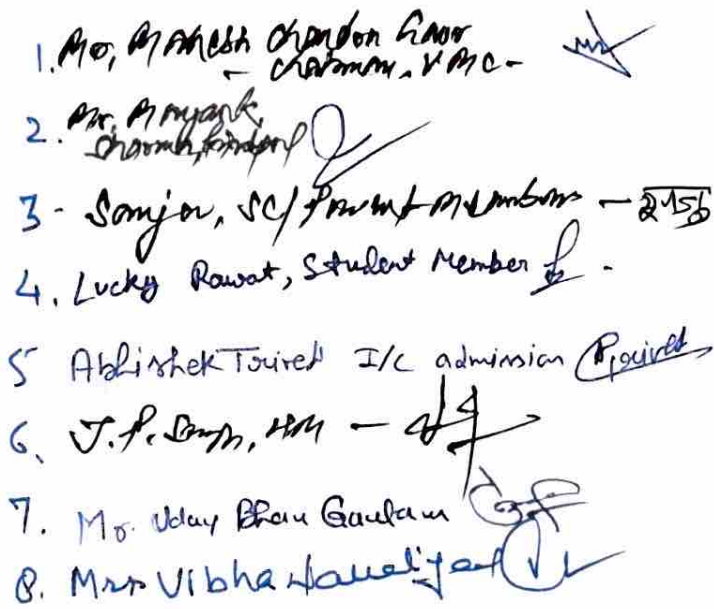 1. Mr. Mahesh Chandra Gaur
- Chairman, VMC -
2. Mr. Mayank
Sharma,
3 - Sanjay, SC/Parent Members -
4. Lucky Rawat, Student Member
5 Abhishek I/C admission
6. J.P. Singh, HM -
7. Mr. Uday Bhan Gautam
8. Mrs Vibha